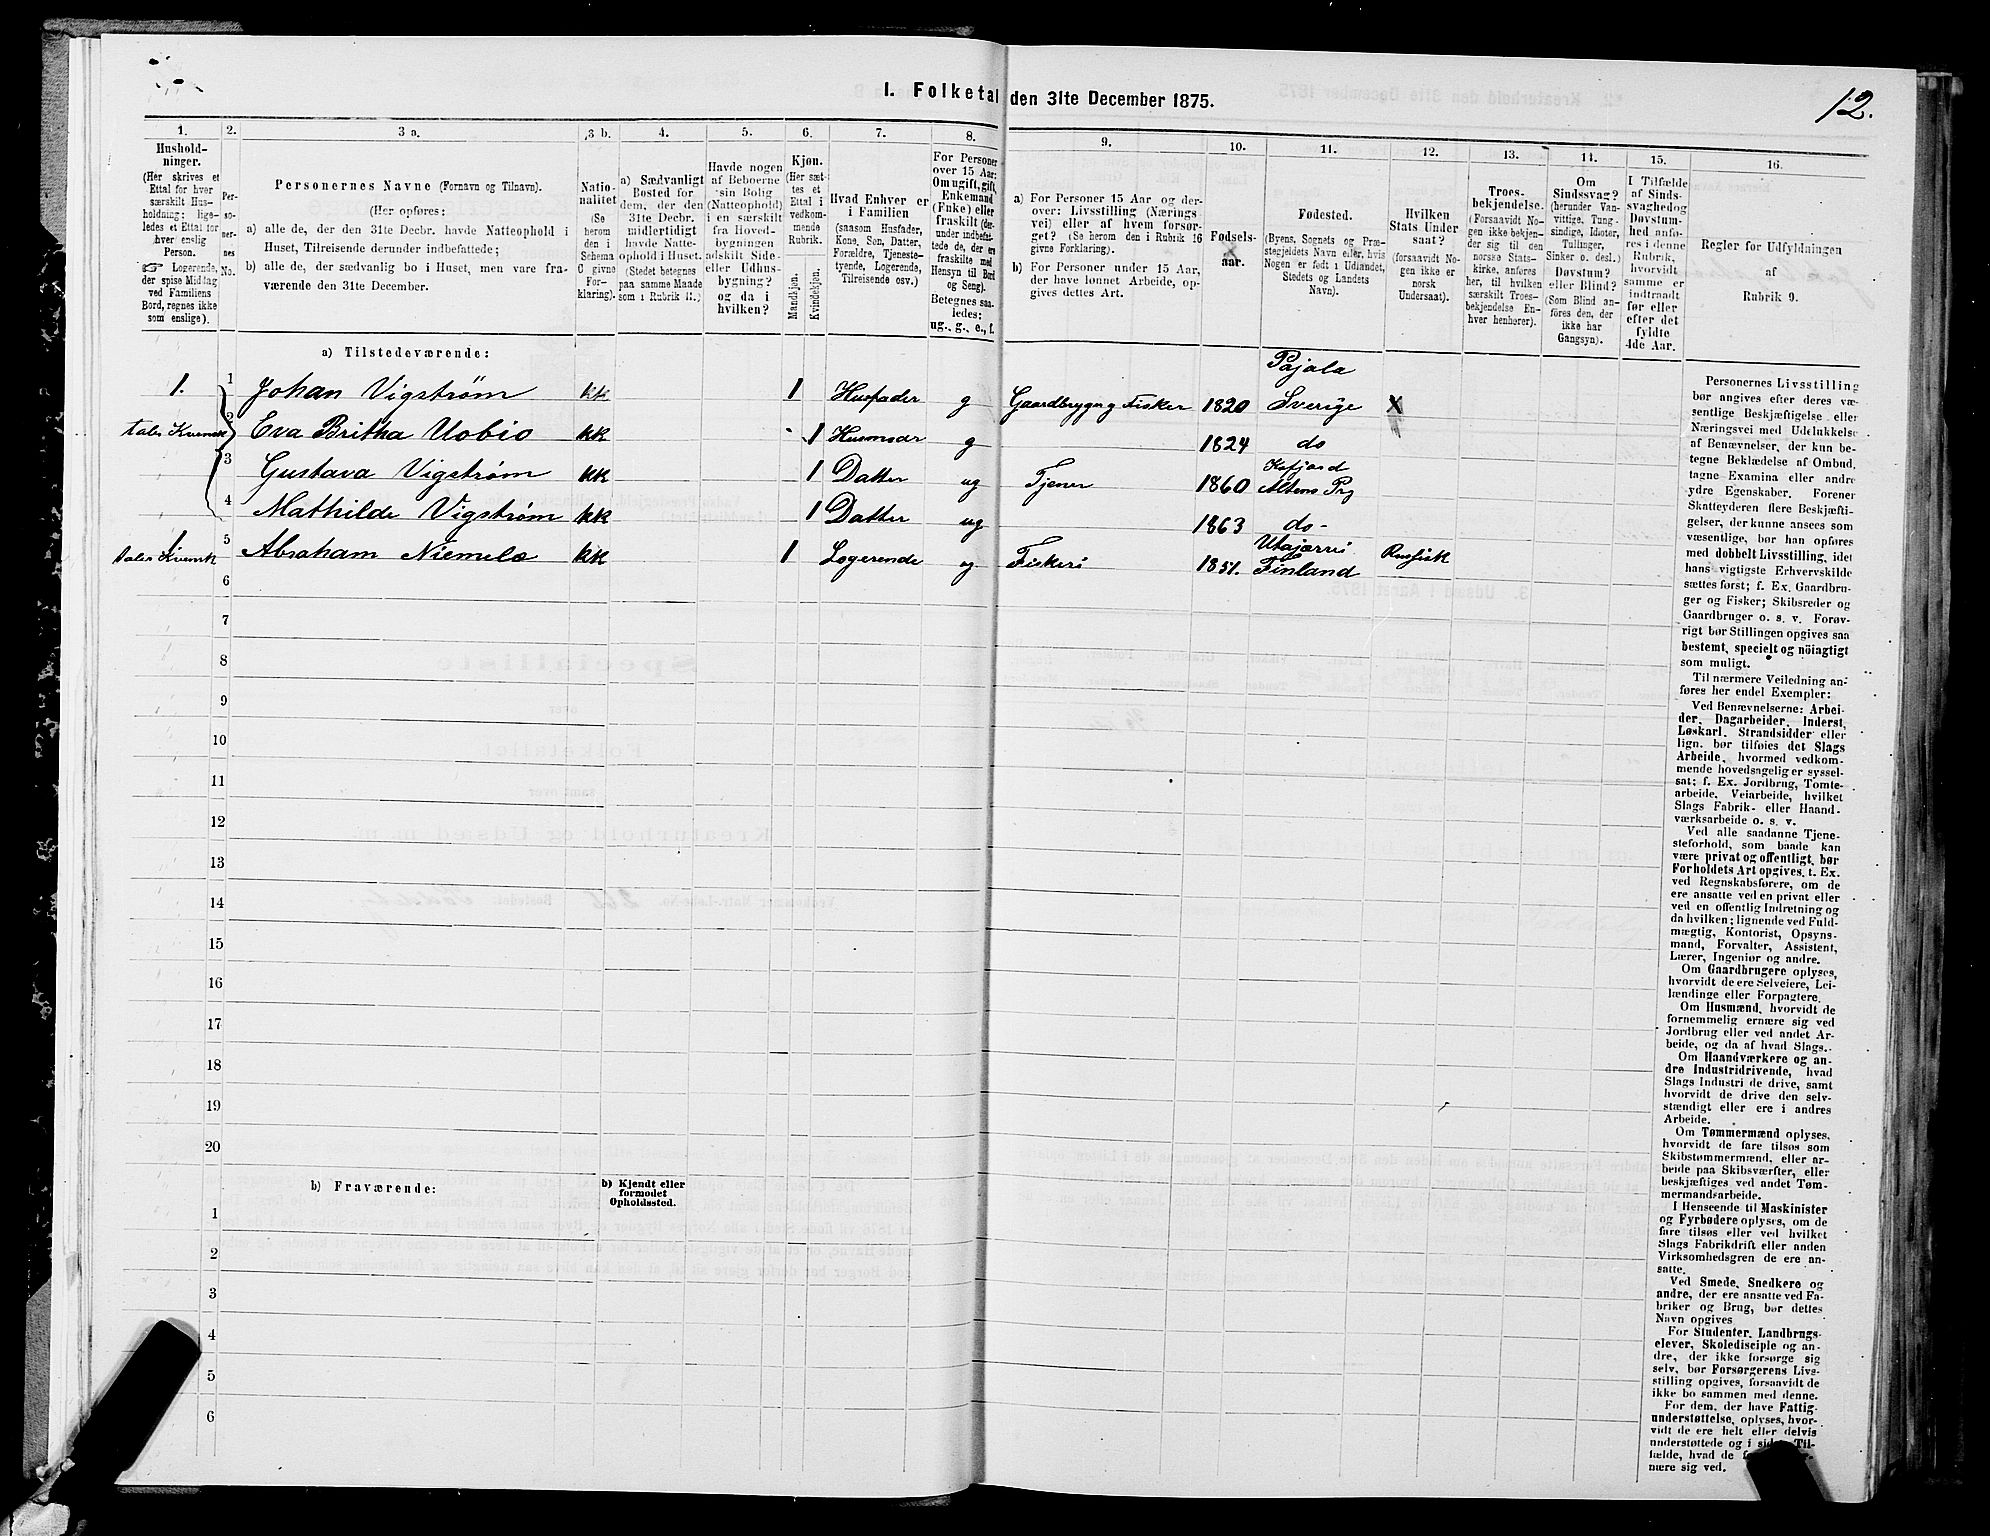 1. Folketal den 31te December 1875.
12.
1.
Hushold-
ninger.
(Her skrives et
Ettal for hver
særskilt Hus-
holdning; lige-
ledes et Ettal for
hver enslig
Person.
☞ Logerende,
der spise Middag
ved Familiens
Bord, regnes ikke
som enslige).
2.
Per-
so-
ner-
nes
No.
3 a.
Personernes Navne (Fornavn og Tilnavn).
(Her opføres:
a) alle de, der den 31te Decbr. havde Natteophold i
Huset, Tilreisende derunder indbefattede;
b) alle de, der sædvanlig bo i Huset, men vare fra-
værende den 31te December.
3 b.
Natio-
nalitet
(Se
herom
den i
Schema
C givne
For-
klaring).
4.
a) Sædvanligt
Bosted for
dem, der den
31te Decbr.
midlertidigt
havde Natte-
ophold i Huset.
(Stedet betegnes
paa samme Maade
som i Rubrik 11.)
5.
Havde nogen
af Beboerne
sin Bolig
(Natteophold)
i en særskilt
fra Hoved-
bygningen
adskilt Side-
eller Udhus-
bygning?
og da i
hvilken?
6.
Kjøn.
(Her sæt-
tes et
Ettal i
vedkom-
mende
Rubrik.
Mandkjøn.
Kvindekjøn.
7.
Hvad Enhver er
i Familien
(saasom Husfader,
Kone, Søn, Datter,
Forældre, Tjeneste-
tyende, Logerende,
Tilreisende osv.)
8.
For Personer
over 15 Aar:
Om ugift, gift,
Enkemand
(Enke) eller
fraskilt (der-
under indbefat-
tede de, der ere
fraskilte med
Hensyn til Bord
og Seng).
Betegnes saa-
ledes:
ug., g., e., f.
9.
a) For Personer 15 Aar og der-
over: Livsstilling (Nærings-
vei) eller af hvem forsør-
get? (Se herom den i Rubrik 16
givne Forklaring).
b) For Personer under 15 Aar,
der have lønnet Arbeide, op-
gives dettes Art.
10.
Fødsels-
aar.
11.
Fødested.
(Byens, Sognets og Præ-
stegjeldets Navn eller, hvis
Nogen er født i Udlandet,
Stedets og Landets
Navn).
12.
Hvilken
Stats Under
saat?
(forsaavidt No-
gen ikke er
norsk
Undersaat).
13.
Troes-
bekjendelse.
(Forsaavidt No-
gen ikke bekjen-
der sig til den
norske Stats-
kirke, anføres
her, til hvilken
særskilt Troes-
bekjendelse En-
hver henhører).
14.
Om
Sindssvag?
(herunder Van-
vittige, Tung-
sindige, Idioter,
Tullinger,
Sinker o. desl.)
Døvstum?
eller Blind?
(Som Blind an-
føres den, der
ikke har
Gangsyn).
15.
I Tilfælde
af Sinds-
svaghed og
Døvstum-
hed anfø-
res i denne
Rubrik,
hvorvidt
samme er
indtraadt
før eller
efter det
fyldte
4de Aar.
16.
Regler for Udfyldningen
af
Rubrik 9.
a) Tilstedeværende:
Pajala
1. 1 Johan Vigstrøm kk 1 Husfader g Gaardbryger og Fisker 1820 Sverige X
taler Kvensk 2 Eva Britha Uobio kk 1 Husmodr g 1824 do
Kafjord
3 Gustava Vigstrøm kk 1 Datter ug Tjener 1860 Altens Prg
4 Mathilde Vigstrøm kk 1 Datter ug 1863 do-
1 Utajærvi
taler Kvensk 5 Abraham Niemelæ kk 1 Logerende ug Fiskeri 1851. Finland Russisk
6
7
8
9
10
11
12
13
14
15
16
17
18
19
20
b) Fraværende:
b) Kjendt eller
formodet
Opholdssted.
1
2
3
4
5
6
Personernes Livsstilling
bør angives efter deres væ-
sentlige Beskjæftigelse eller
Næringsvei med Udelukkelse
af Benævnelser, der kun be-
tegne Beklædelse af Ombud,
tagne Examina eller andre
ydre Egenskaber. Forener
Skatteyderen flere Beskjæfti-
gelser, der kunne ansees som
væsentlige, bør han opføres
med dobbelt Livsstilling, idet
hans vigtigste Erhvervskilde
sættes først; f. Ex. Gaardbru-
ger og Fisker; Skibsreder og
Gaardbruger o. s. v. Forøv-
rigt bør Stillingen opgives saa
bestemt, specielt og nöiagtigt
som muligt.
Til nærmere Veiledning an-
føres her endel Exempler:
Ved Benævnelserne: Arbei-
der, Dagarbeider, Inderst,
Løskarl, Strandsidder eller
lign. bør tilføies det Slags
Arbeide, hvormed vedkom-
mende hovedsagelig er syssel-
sat; f. Ex. Jordbrug, Tomte-
arbeide, Veiarbeide, hvilket
Slags Fabrik- eller Haand-
værksarbeide o. s. v.
Ved alle saadanne Tjene-
steforhold, som baade kan
være privat og offentligt, bør
Forholdets Art opgives, f. Ex.
ved Regnskabsførere, om de
ere ansatte ved en privat eller
ved en offentlig Indretning og
da hvilken; lignende ved Fuld-
mægtig, Kontorist, Opsyns-
mand, Forvalter, Assistent,
Lærer, Ingeniør og andre.
Om Gaardbrugere oplyses,
hvorvidt de ere Selveiere, Lei-
lændinge eller Forpagtere.
Om Husmænd, hvorvidt de
fornemmelig ernære sig ved
Jordbrug eller ved andet Ar-
beide, og da af hvad Slags.
Om Haandværkere og an-
dre Industridrivende, hvad
Slags Industri de drive, samt
hvorvidt de drive den selv-
stændigt eller ere i andres
Arbeide.
Om Tømmermænd oplyses,
hvorvidt de fare tilsøs som
Skibstømmermænd, eller ar-
beide paa Skibsværfter, eller
beskjæftiges ved andet Tøm-
mermandsarbeide.
I Henseende til Maskinister
og Fyrbødere oplyses, om de
fare tilsøs eller ved hvilket
Slags Fabrikdrift eller anden
Virksomhedsgren de ere an-
satte.
Ved Smede, Snedkere og
andre, der ere ansatte ved Fa-
briker og Brug, bør dettes
Navn opgives
For Studenter, Landbrugs-
elever, Skoledisciple og an-
dre, der ikke forsørge sig
selv, bør Forsørgerens Livs-
stilling opgives, forsaavidt de
ikke bo sammen med denne.
For dem, der have Fattig-
understøttelse, oplyses, hvor-
vidt de ere helt eller delvis
understøttede og i sid Til-
fælde, hvad de
nære sig ved.